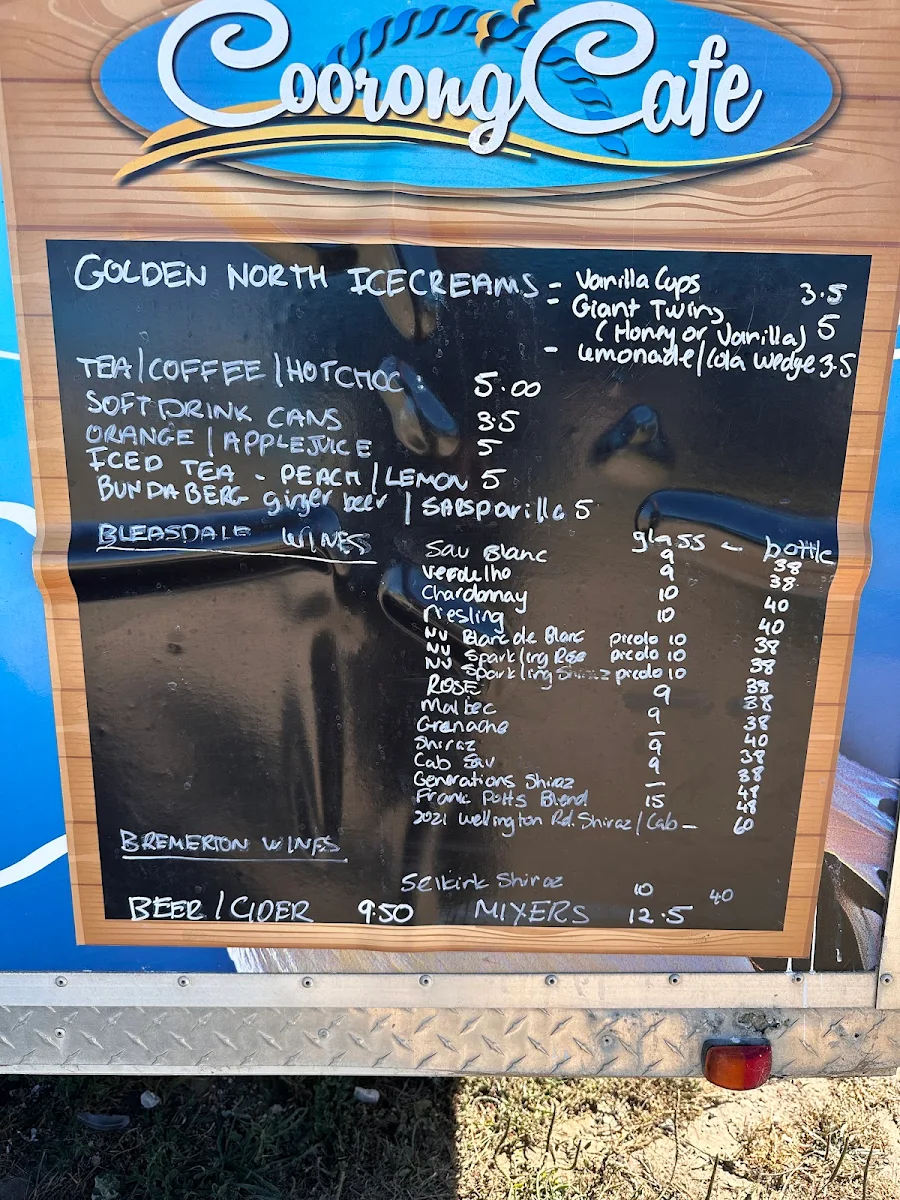 Coorong Cafe
GOLDEN NORTH ICECREAMS - Vanilla Cups 3.5
- Giant Twins
(Honey or Vanilla) 5
- Lemonade/Cola Wedge 3.5
TEA/COFFEE/HOTCHOC 5.00
SOFT DRINK CANS 3.5
ORANGE / APPLEJUICE 5
ICED TEA - PEACH/LEMON 5
BUNDABERG ginger beer / SARSParilla 5
BLEASDALE WINES glass - bottle
Sau Blanc 9 38
Verdelho 9 38
Chardonnay 10 40
riesling 10 40
NV Blanc de Blanc picolo 10 38
NV Sparkling Rose picolo 10 38
NV Sparkling Shiraz picolo 10 38
ROSE 9 38
Malbec 9 38
Grenache - 40
Shiraz 9 38
Cab Sav 9 38
Generations Shiraz - 48
Frank Potts Blend 15 48
2021 Wellington Rd. Shiraz/Cab - 60
BREMERTON WINES
Selkirk Shiraz 10 40
BEER/CIDER 9.50 MIXERS 12.5